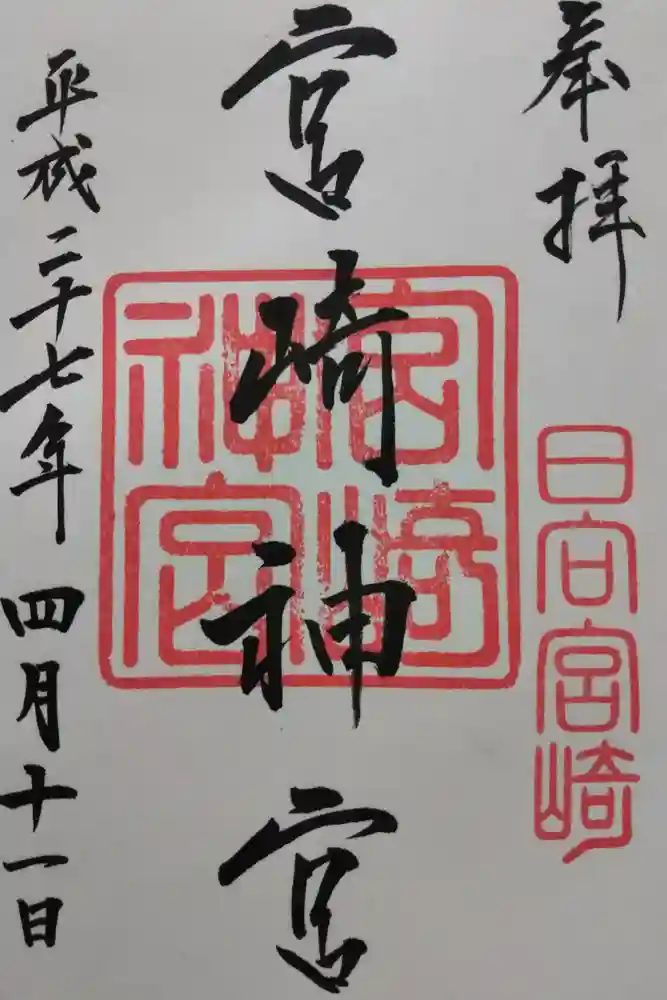 奉拝
日向宮崎
宮崎神宮
宮崎神宮
平成二十七年四月十一日